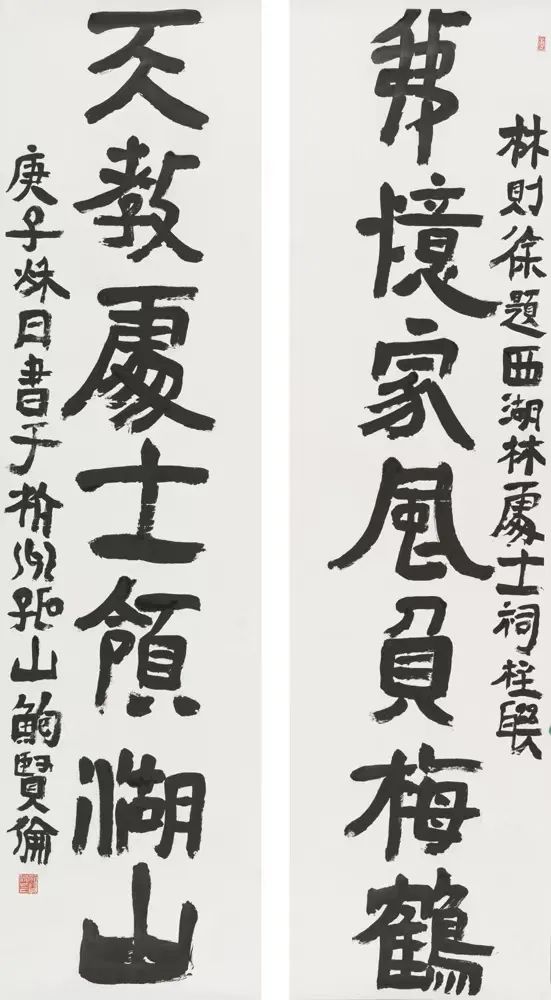 林則徐題西湖林處士祠柱聯
我憶家風負梅鶴
天教處士領湖山
庚子秌日書于杭州孤山鮑賢倫